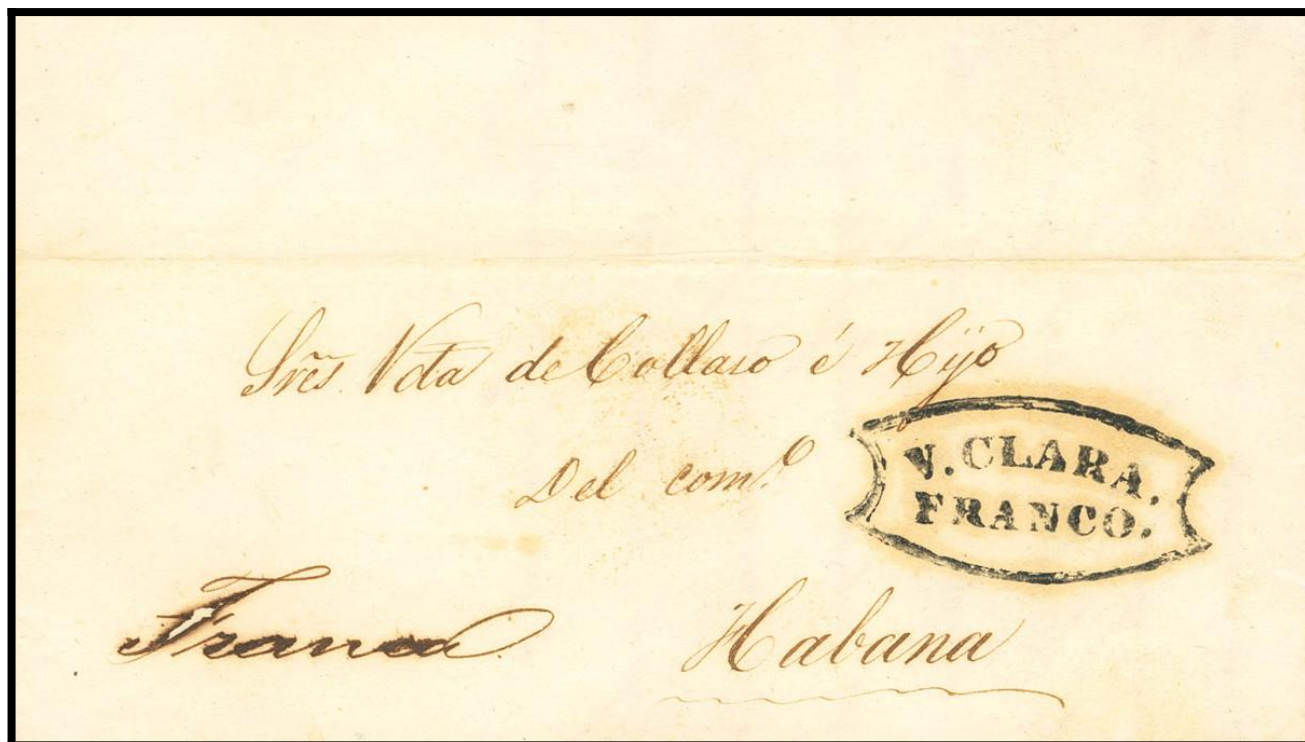 Sres. Vda de Collazo é Hijo
Del com.o
V. CLARA.
FRANCO.
Franca
Habana